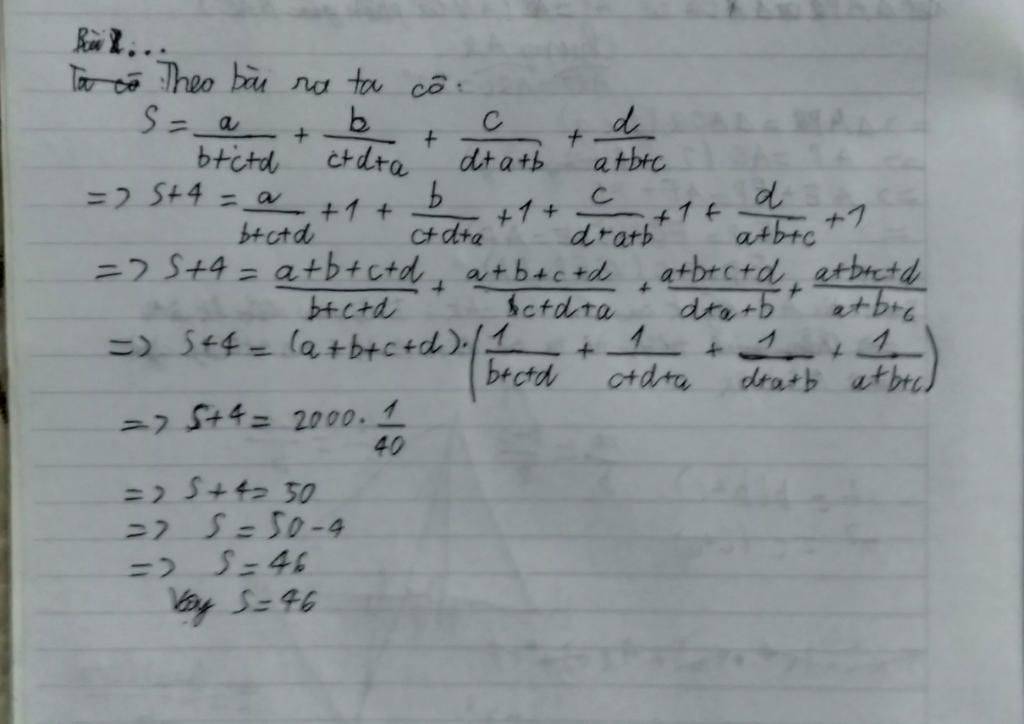 Bài 2...
Ta có Theo bài ra ta có:
S = a/(b+c+d) + b/(c+d+a) + c/(d+a+b) + d/(a+b+c)
=> S+4 = a/(b+c+d) + 1 + b/(c+d+a) + 1 + c/(d+a+b) + 1 + d/(a+b+c) + 1
=> S+4 = (a+b+c+d)/(b+c+d) + (a+b+c+d)/(c+d+a) + (a+b+c+d)/(d+a+b) + (a+b+c+d)/(a+b+c)
=> S+4 = (a+b+c+d).(1/(b+c+d) + 1/(c+d+a) + 1/(d+a+b) + 1/(a+b+c))
=> S+4 = 2000. 1/40
=> S+4 = 50
=> S = 50-4
=> S = 46
Vậy S = 46